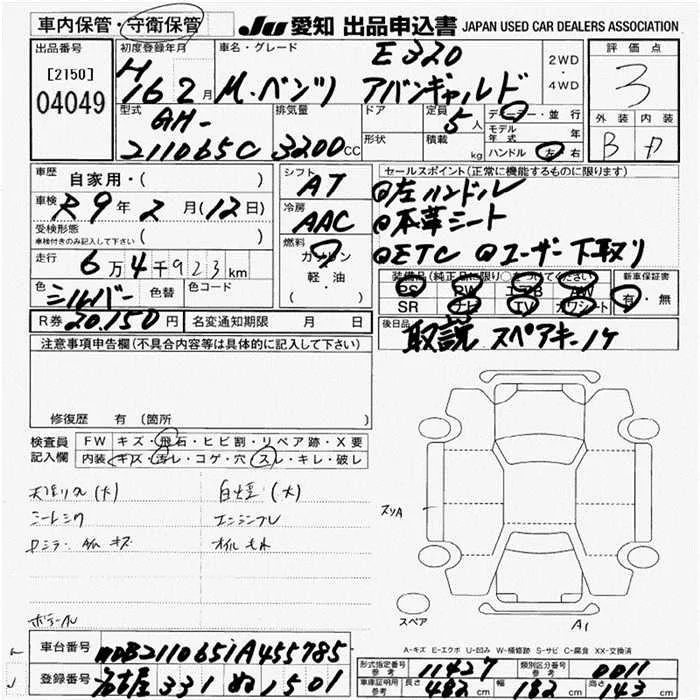 車内保管・守衛保管 JU 愛知 出品申込書 JAPAN USED CAR DEALERS ASSOCIATION
出品番号 初度登録年月 車名・グレード 評価点
[2150] H 16 2月 M・ベンツ E320 アバンギャルド 2WD・4WD 3
04049
型式 排気量 ドア 定員 5人 ディーラー・並行 外装 内装
GH- 形状 積載 モデル年式 年 B D
211065C 3200CC kg ハンドル 左・右
車歴 自家用・( ) シフト AT セールスポイント(正常に機能するものに限ります)
車検 R9年2月(12日) 冷房 AAC @左ハンドル
受検形態 ( ) @本革シート
車検付きのみ記入して下さい 燃料 ガソリン @ETC @ユーザー下取り
走行 6万4千923km 軽・油
( ) 装備品(純正品に限り○をつけてください) 新車保証書
色 シルバー 色替 色コード PS PW エアB AW 有・無
SR ナビ TV カワシート
R券 20,150円 名変通知期限 月 日 後日品 取説 スペアキー1ケ
注意事項申告欄(不具合内容等は具体的に記入して下さい)
修復歴 有(箇所
検査員記入欄 FW キズ・飛石・ヒビ割・リペア跡・X要
内装 キズ・汚レ・コゲ・穴・スレ・キレ・破レ
白煙(大)
スリA
スペア
A1
A-キズ E-エクボ U-凹み W-補修跡 S-サビ C-腐食 XX-交換済
車台番号 WDB2110651A455785
登録番号 名古屋 331 ぬ 1501
形式指定番号 参考 11427 類別区分番号 参考 0011
車庫証明用 参考 長さ 482cm 幅 182cm 高さ 143cm